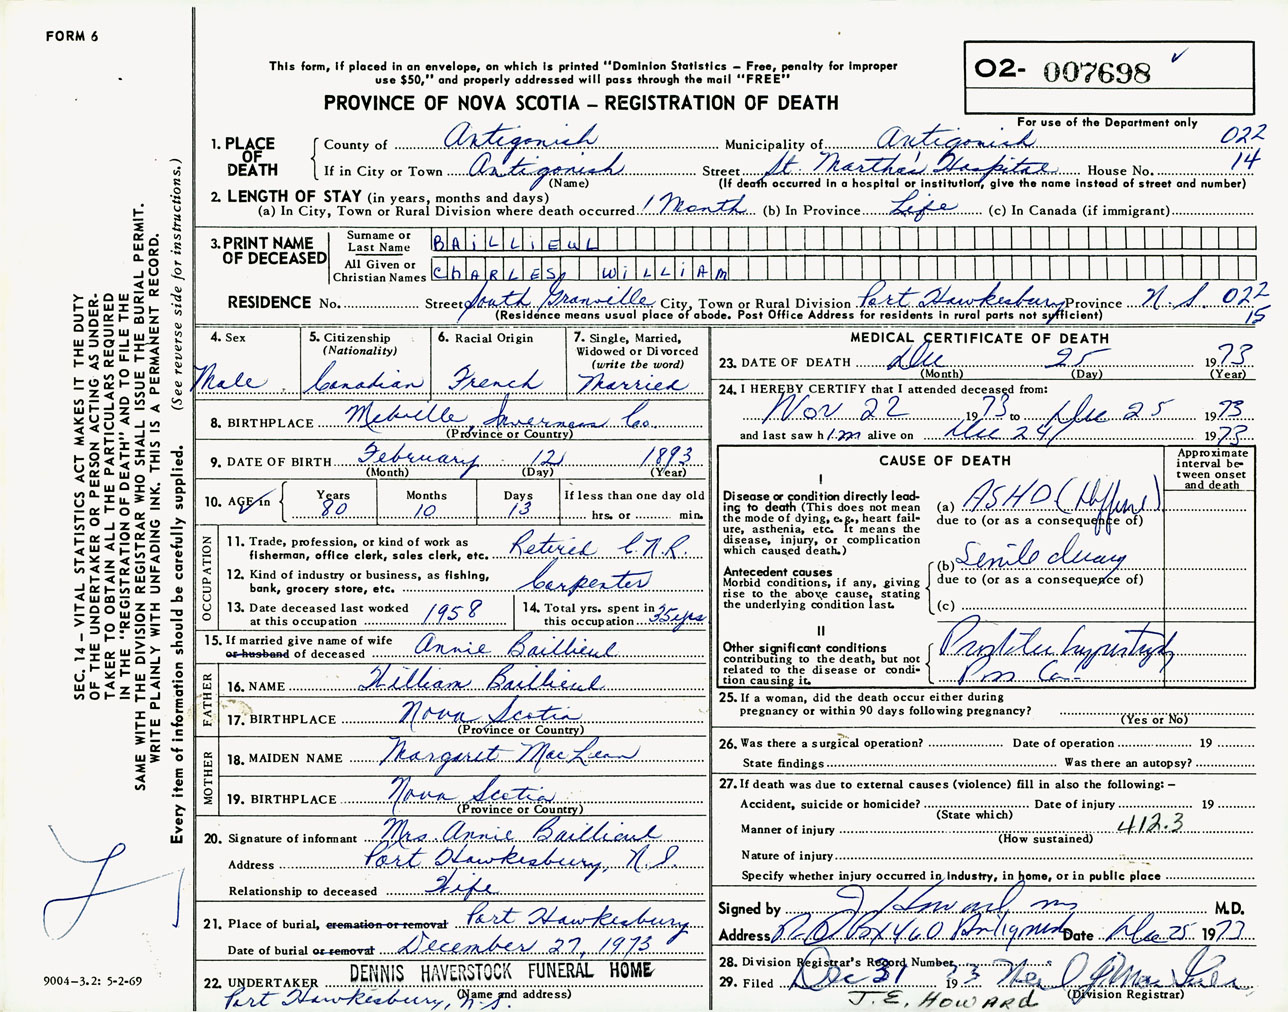 FORM 6
O2- 007698
This form, if placed in an envelope, on which is printed "Dominion Statistics – Free, penalty for improper
use $50," and properly addressed will pass through the mail "FREE"
PROVINCE OF NOVA SCOTIA – REGISTRATION OF DEATH
For use of the Department only
1. PLACE OF DEATH County of Antigonish Municipality of Antigonish 022
If in City or Town Antigonish Street St. Martha's Hospital House No. 14
(Name) (If death occurred in a hospital or institution, give the name instead of street and number)
2. LENGTH OF STAY (in years, months and days)
(a) In City, Town or Rural Division where death occurred 1 Month (b) In Province Life (c) In Canada (if immigrant)
3. PRINT NAME OF DECEASED Surname or Last Name BAILLIEUL
All Given or Christian Names CHARLES, WILLIAM
RESIDENCE No. Street South Granville City, Town or Rural Division Port Hawkesbury Province N.S. 022
(Residence means usual place of abode. Post Office Address for residents in rural parts not sufficient) 15
4. Sex Male
5. Citizenship (Nationality) Canadian
6. Racial Origin French
7. Single, Married, Widowed or Divorced (write the word) Married
8. BIRTHPLACE Melville, Inverness Co.
(Province or Country)
9. DATE OF BIRTH February 12 1893
(Month) (Day) (Year)
10. AGE in Years 80 Months 10 Days 13 If less than one day old hrs. or min.
OCCUPATION
11. Trade, profession, or kind of work as
fisherman, office clerk, sales clerk, etc. Retired C.N.R.
12. Kind of industry or business, as fishing,
bank, grocery store, etc. Carpenter
13. Date deceased last worked
at this occupation 1958
14. Total yrs. spent in
this occupation 35 yrs
15. If married give name of wife
or husband of deceased Annie Baillieul
FATHER
16. NAME William Baillieul
17. BIRTHPLACE Nova Scotia
(Province or Country)
MOTHER
18. MAIDEN NAME Margaret MacLean
19. BIRTHPLACE Nova Scotia
(Province or Country)
20. Signature of informant Mrs. Annie Baillieul
Address Port Hawkesbury, N.S.
Relationship to deceased Wife
21. Place of burial, cremation or removal Port Hawkesbury
Date of burial or removal December 27, 1973
22. UNDERTAKER DENNIS HAVERSTOCK FUNERAL HOME
(Name and address)
Port Hawkesbury, N.S.
MEDICAL CERTIFICATE OF DEATH
23. DATE OF DEATH Dec 25 1973
(Month) (Day) (Year)
24. I HEREBY CERTIFY that I attended deceased from:
Nov 22 1973 to Dec 25 1973
and last saw him alive on Dec 24 1973
CAUSE OF DEATH
Approximate interval between onset and death
I
Disease or condition directly lead-
ing to death (This does not mean
the mode of dying, e.g., heart fail-
ure, asthenia, etc. It means the
disease, injury, or complication
which caused death.)
(a) ASHD
due to (or as a consequence of)
Antecedent causes
Morbid conditions, if any, giving
rise to the above cause, stating
the underlying condition last.
(b) Senile
due to (or as a consequence of)
(c)
II
Other significant conditions
contributing to the death, but not
related to the disease or condi-
tion causing it.
25. If a woman, did the death occur either during
pregnancy or within 90 days following pregnancy?
(Yes or No)
26. Was there a surgical operation? Date of operation 19
State findings Was there an autopsy?
27. If death was due to external causes (violence) fill in also the following: –
Accident, suicide or homicide? Date of injury 19
(State which)
Manner of injury 412.3
(How sustained)
Nature of injury
Specify whether injury occurred in industry, in home, or in public place
Signed by J Howard M.D.
Address P.O. Box 460 Antigonish Date Dec 25 1973
28. Division Registrar's Record Number
29. Filed Dec 31 1973
(Division Registrar)
J. E. HOWARD
SEC. 14 – VITAL STATISTICS ACT MAKES IT THE DUTY
OF THE UNDERTAKER OR PERSON ACTING AS UNDER-
TAKER TO OBTAIN ALL THE PARTICULARS REQUIRED
IN THE "REGISTRATION OF DEATH" AND TO FILE THE
SAME WITH THE DIVISION REGISTRAR WHO SHALL ISSUE THE BURIAL PERMIT.
WRITE PLAINLY WITH UNFADING INK. THIS IS A PERMANENT RECORD.
Every item of information should be carefully supplied. (See reverse side for instructions.)
9004-3.2: 5-2-69